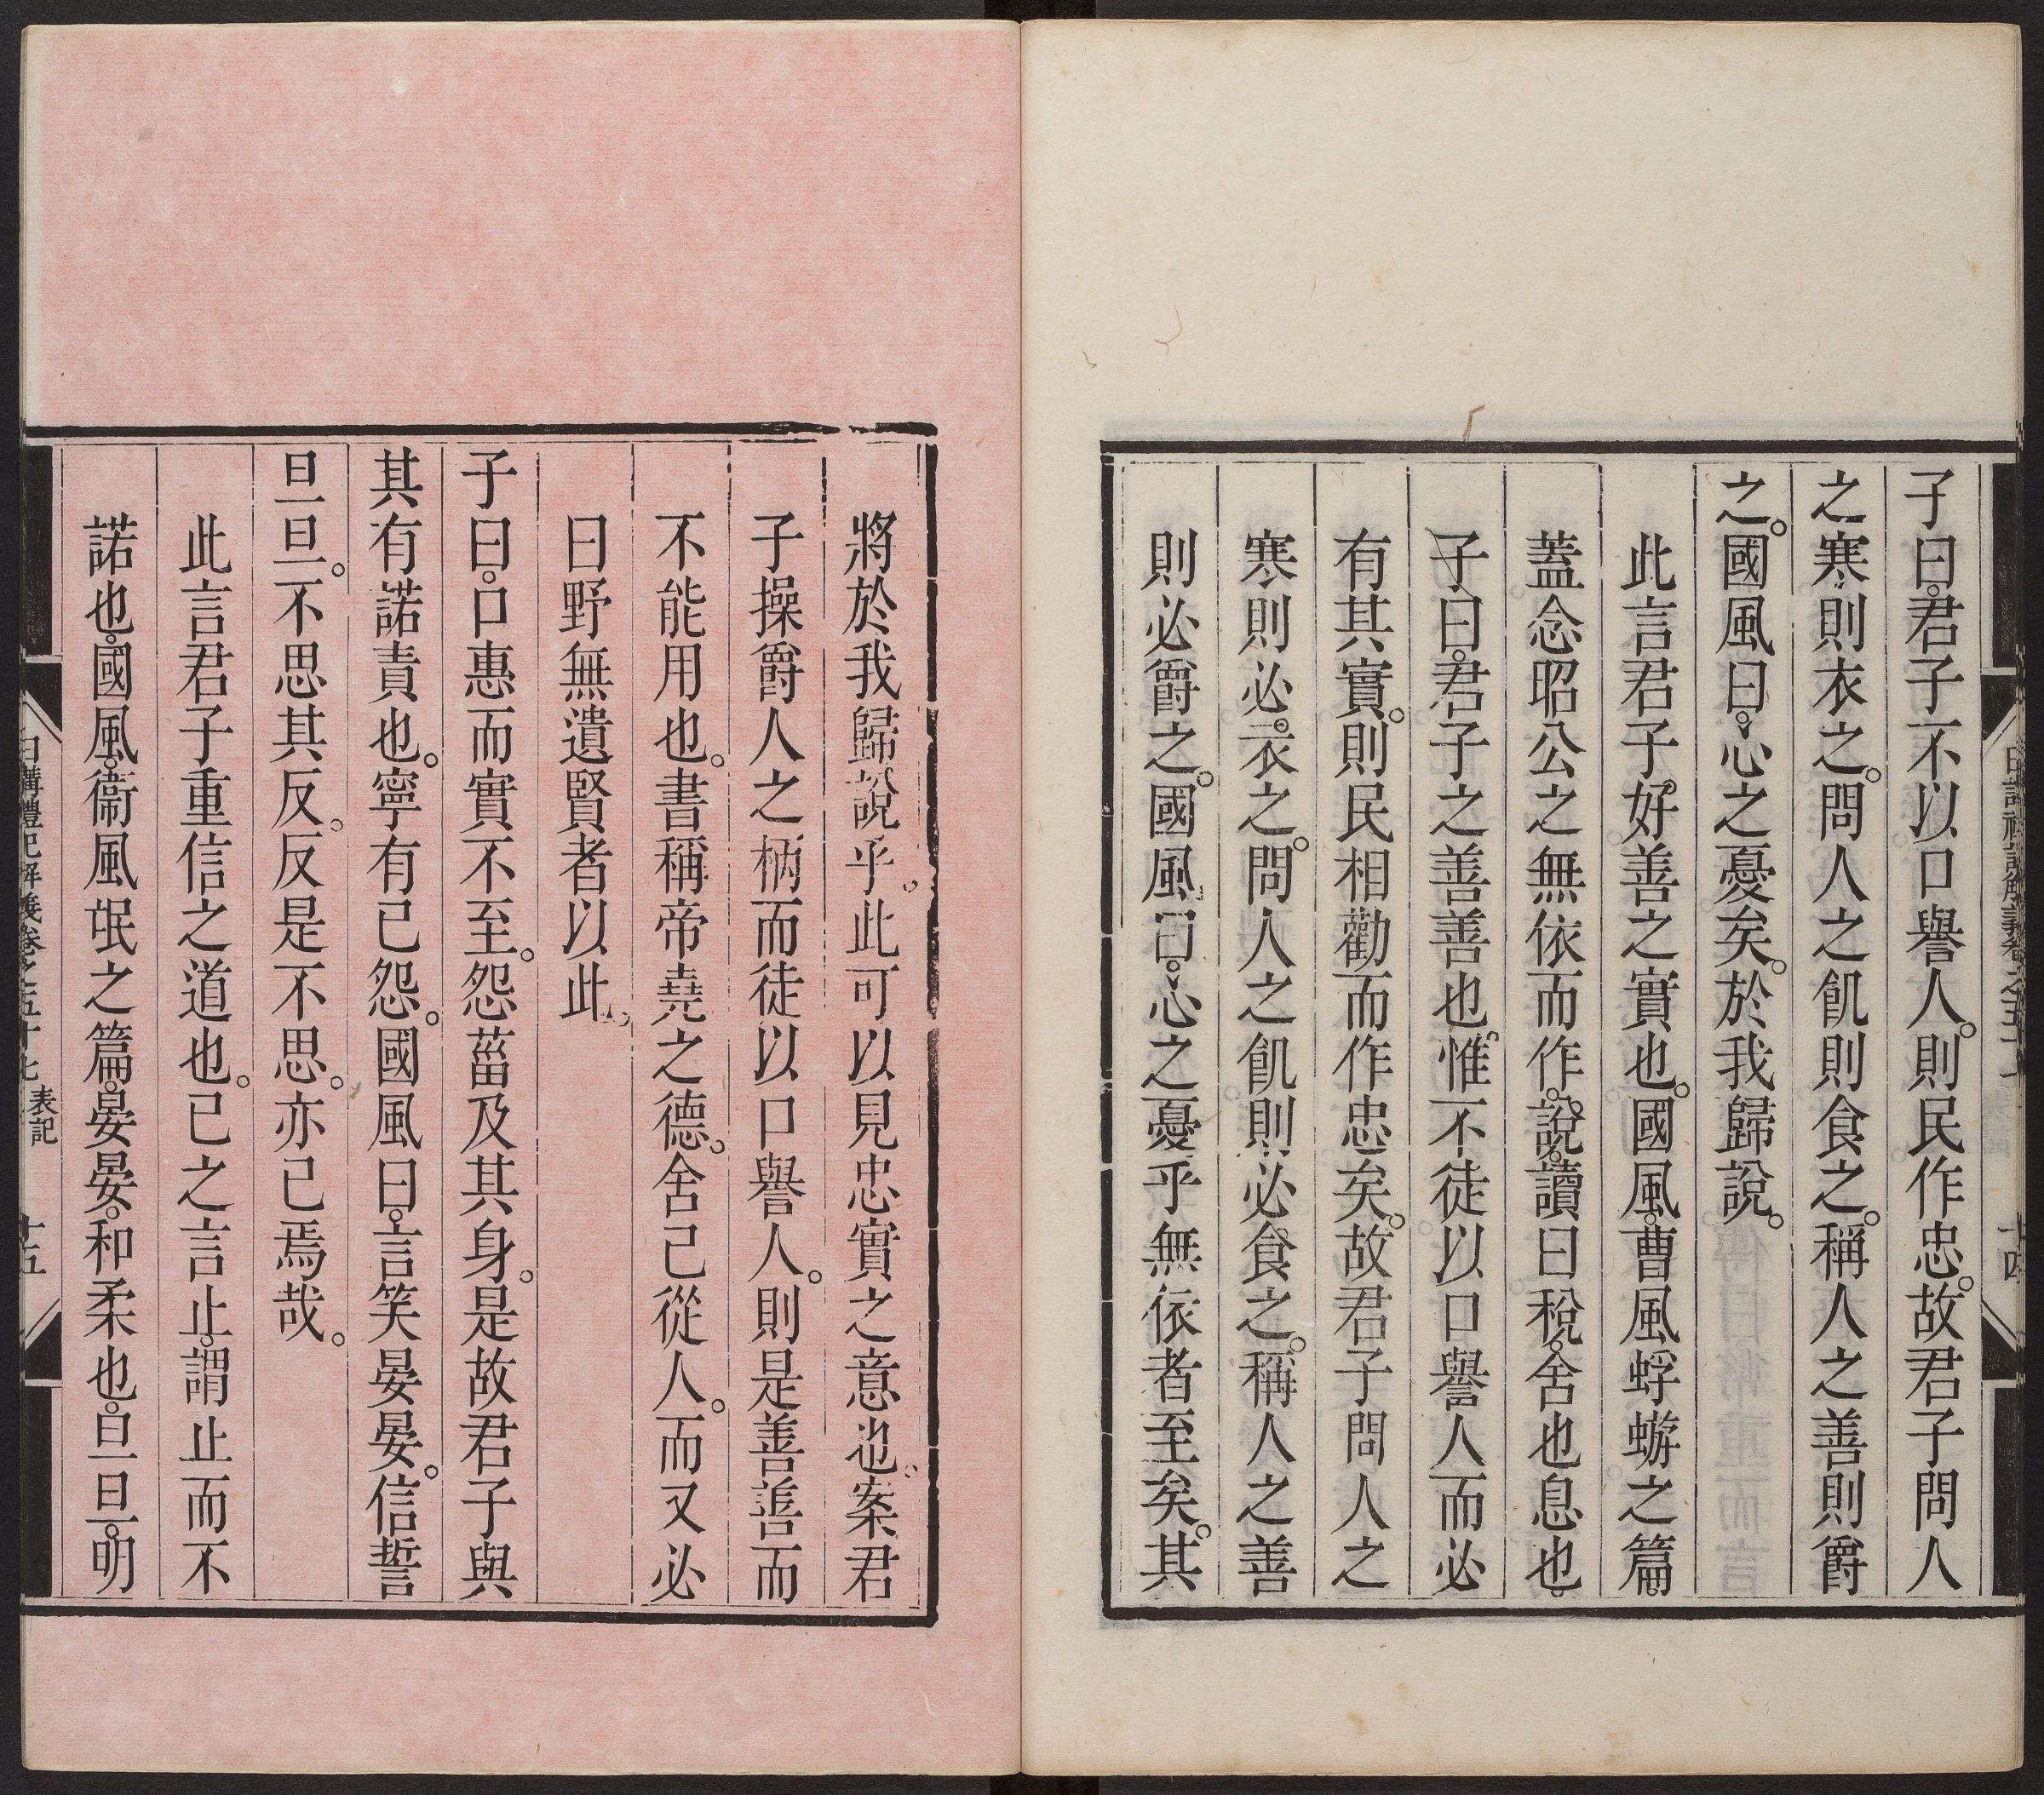 子曰。君子不以口譽人。則民作忠。故君子問人
之寒。則衣之。問人之飢則食之。稱人之善則爵
之。國風曰。心之憂矣。於我歸說。
此言君子好善之實也。國風。曹風蜉蝣之篇。
蓋念昭公之無依而作。說。讀曰稅。舍也息也。
子曰。君子之善善也。惟不徒以口譽人而必
有其實。則民相勸而作忠矣。故君子問人之
寒。則必衣之。問人之飢則必食之。稱人之善
則必爵之。國風曰。心之憂乎無依者至矣。其
將於我歸說乎。此可以見忠實之意也。案君
子操爵人之柄而徒以口譽人。則是善善而
不能用也。書稱帝堯之德。舍己從人。而又必
曰野無遺賢者以此。
子曰。口惠而實不至。怨菑及其身。是故君子與
其有諾責也。寧有已怨。國風曰。言笑晏晏。信誓
旦旦。不思其反。反是不思。亦已焉哉。
此言君子重信之道也。已之言止。謂止而不
諾也。國風。衞風氓之篇。晏晏。和柔也。旦旦。明
日講禮記解義卷之五十七 表記 十五